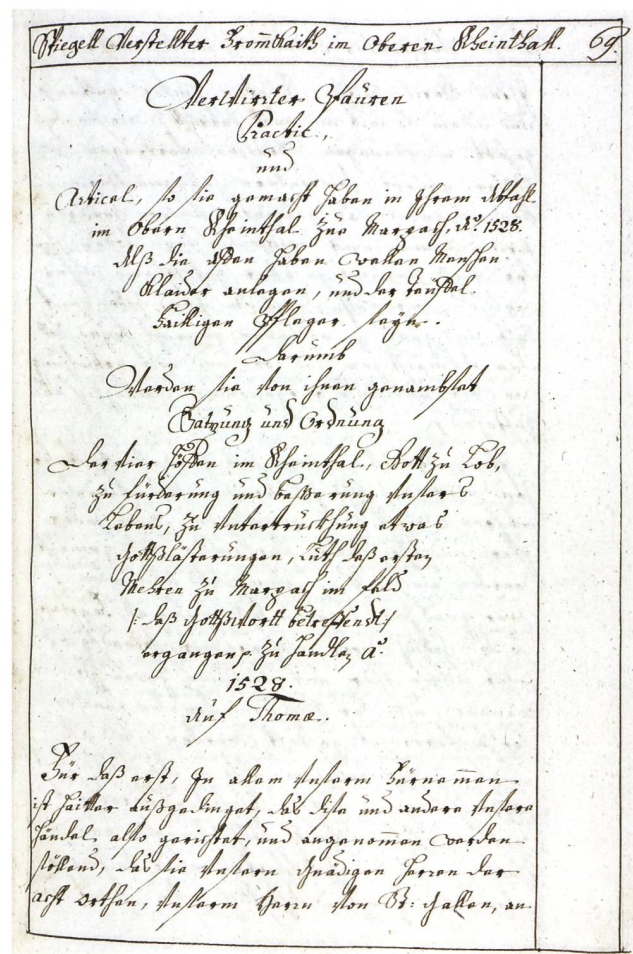 Spiegell Verstellter Frommkaith im Oberen Rheinthall. 69.
Verwirrter Pauren
Practic,
und
Articel, so sie gemacht haben in Ihrem Abfahl
im Obern Rheinthal zue Marpach, Aº. 1528.
Alß die Affen haben wellen Menschen
Klaider anlegen, und der Teuffel
Hailigen Pfleger seyn.
Darumb
Werden sie von ihnen genambset
Satzung und Ordnung
Der vier Höffen im Rheinthal, Gott zu Lob,
zu fürderung und besserung unsers
Lebens, zu untertruckhung etwas
Gottslästerungen, Luth deß ersten
Mehren zu Marpach im feld
/: daß Gottswortt betreffendt :/
ergangen, zu handlen Aº.
1528.
Auf Thomæ.
Für daß erst, In allem unserm Fürnemmen
ist haitter außgedinget, das dise und andere unsere
Händel also gerichtet, und angenommen werden
söllend, das sie unsern Gnädigen Herren der
acht Orthen, unserm Herrn von St: Gallen, an